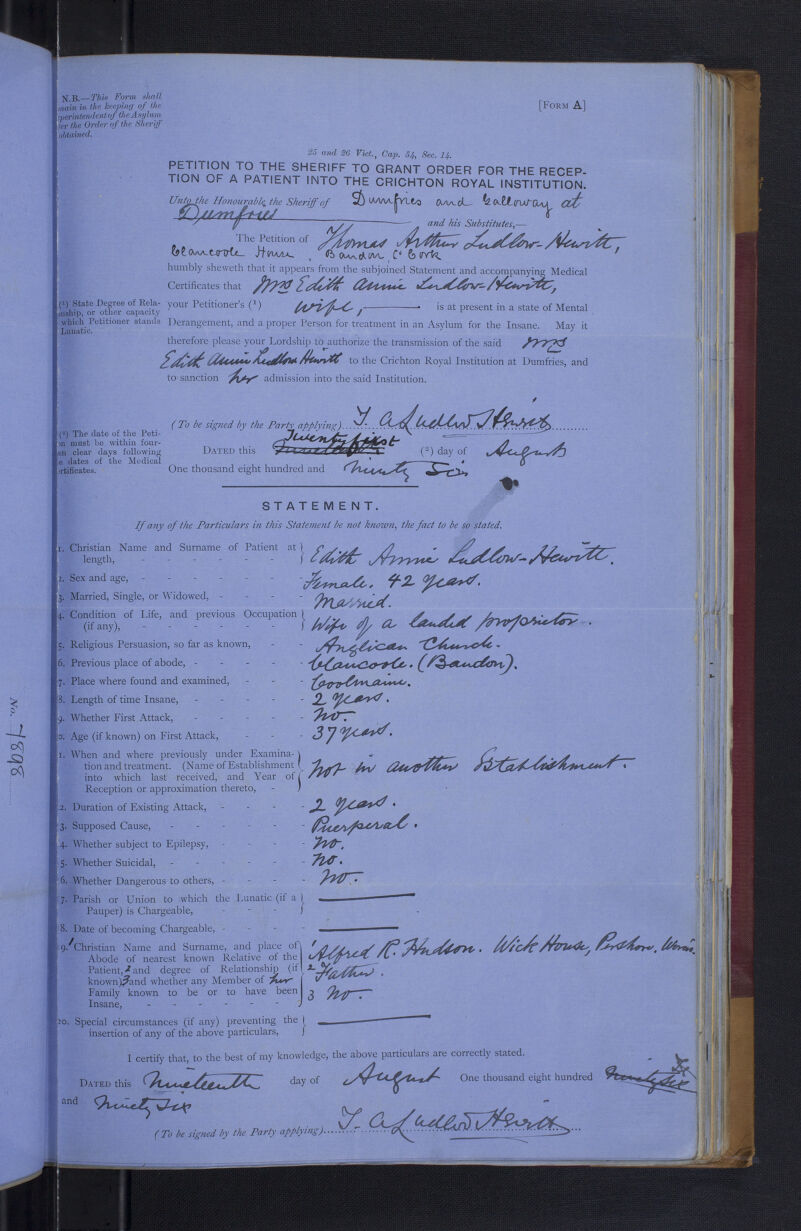 N.B.—This Form shall
main in the keeping of the
perintendent of the Asylum
ter the Order of the Sheriff
obtained.
[FORM A]
25 and 26 Vict., Cap. 54, Sec. 14.
PETITION TO THE SHERIFF TO GRANT ORDER FOR THE RECEP-
TION OF A PATIENT INTO THE CRICHTON ROYAL INSTITUTION.
Unto the Honourable the Sheriff of Dumfries and Galloway at
Dumfries and his Substitutes,—
The Petition of Thomas Arthur Ludlow-Hewitt,
Clancoole House, Bandon, Co Cork
humbly sheweth that it appears from the subjoined Statement and accompanying Medical
Certificates that Mrs Edith Annie Ludlow-Hewitt,
(1) State Degree of Rela-
nship, or other capacity
which Petitioner stands
Lunatic.
your Petitioner's (1) wife, is at present in a state of Mental
Derangement, and a proper Person for treatment in an Asylum for the Insane. May it
therefore please your Lordship to authorize the transmission of the said Mrs
Edith Annie Ludlow Hewitt to the Crichton Royal Institution at Dumfries, and
to sanction her admission into the said Institution.
(To be signed by the Party applying) T A Ludlow Hewitt
(2) The date of the Peti-
n must be within four-
en clear days following
e dates of the Medical
rtificates.
Twenty first
DATED this (2) day of August
One thousand eight hundred and ninety Six
STATEMENT.
If any of the Particulars in this Statement be not known, the fact to be so stated.
1. Christian Name and Surname of Patient at length, Edith Annie Ludlow-Hewitt.
2. Sex and age, Female. 42 years.
3. Married, Single, or Widowed, Married.
4. Condition of Life, and previous Occupation (if any), Wife of a landed proprietor.
5. Religious Persuasion, so far as known, Anglican Church.
6. Previous place of abode, Clancoole. (Bandon).
7. Place where found and examined, Coolmaine.
8. Length of time Insane, 2 years.
9. Whether First Attack, No.
10. Age (if known) on First Attack, 37 years.
11. When and where previously under Examina-
tion and treatment. (Name of Establishment
into which last received, and Year of
Reception or approximation thereto, Not in another Establishment.
12. Duration of Existing Attack, 2 years.
13. Supposed Cause, Puerperal.
14. Whether subject to Epilepsy, No.
15. Whether Suicidal, No.
16. Whether Dangerous to others, No.
17. Parish or Union to which the Lunatic (if a
Pauper) is Chargeable,
18. Date of becoming Chargeable,
19. 1 Christian Name and Surname, and place of
Abode of nearest known Relative of the
Patient, 2 and degree of Relationship (if
known) 3 and whether any Member of her
Family known to be or to have been
Insane,
1 Alfred R. Hudson. Wick House, Pershore, Worcs.
2 Father.
3 No.
20. Special circumstances (if any) preventing the
insertion of any of the above particulars,
I certify that, to the best of my knowledge, the above particulars are correctly stated.
DATED this Nineteenth day of August One thousand eight hundred ninety six
and Ninety Six
(To be signed by the Party applying) T. A Ludlow Hewitt
No. 7898